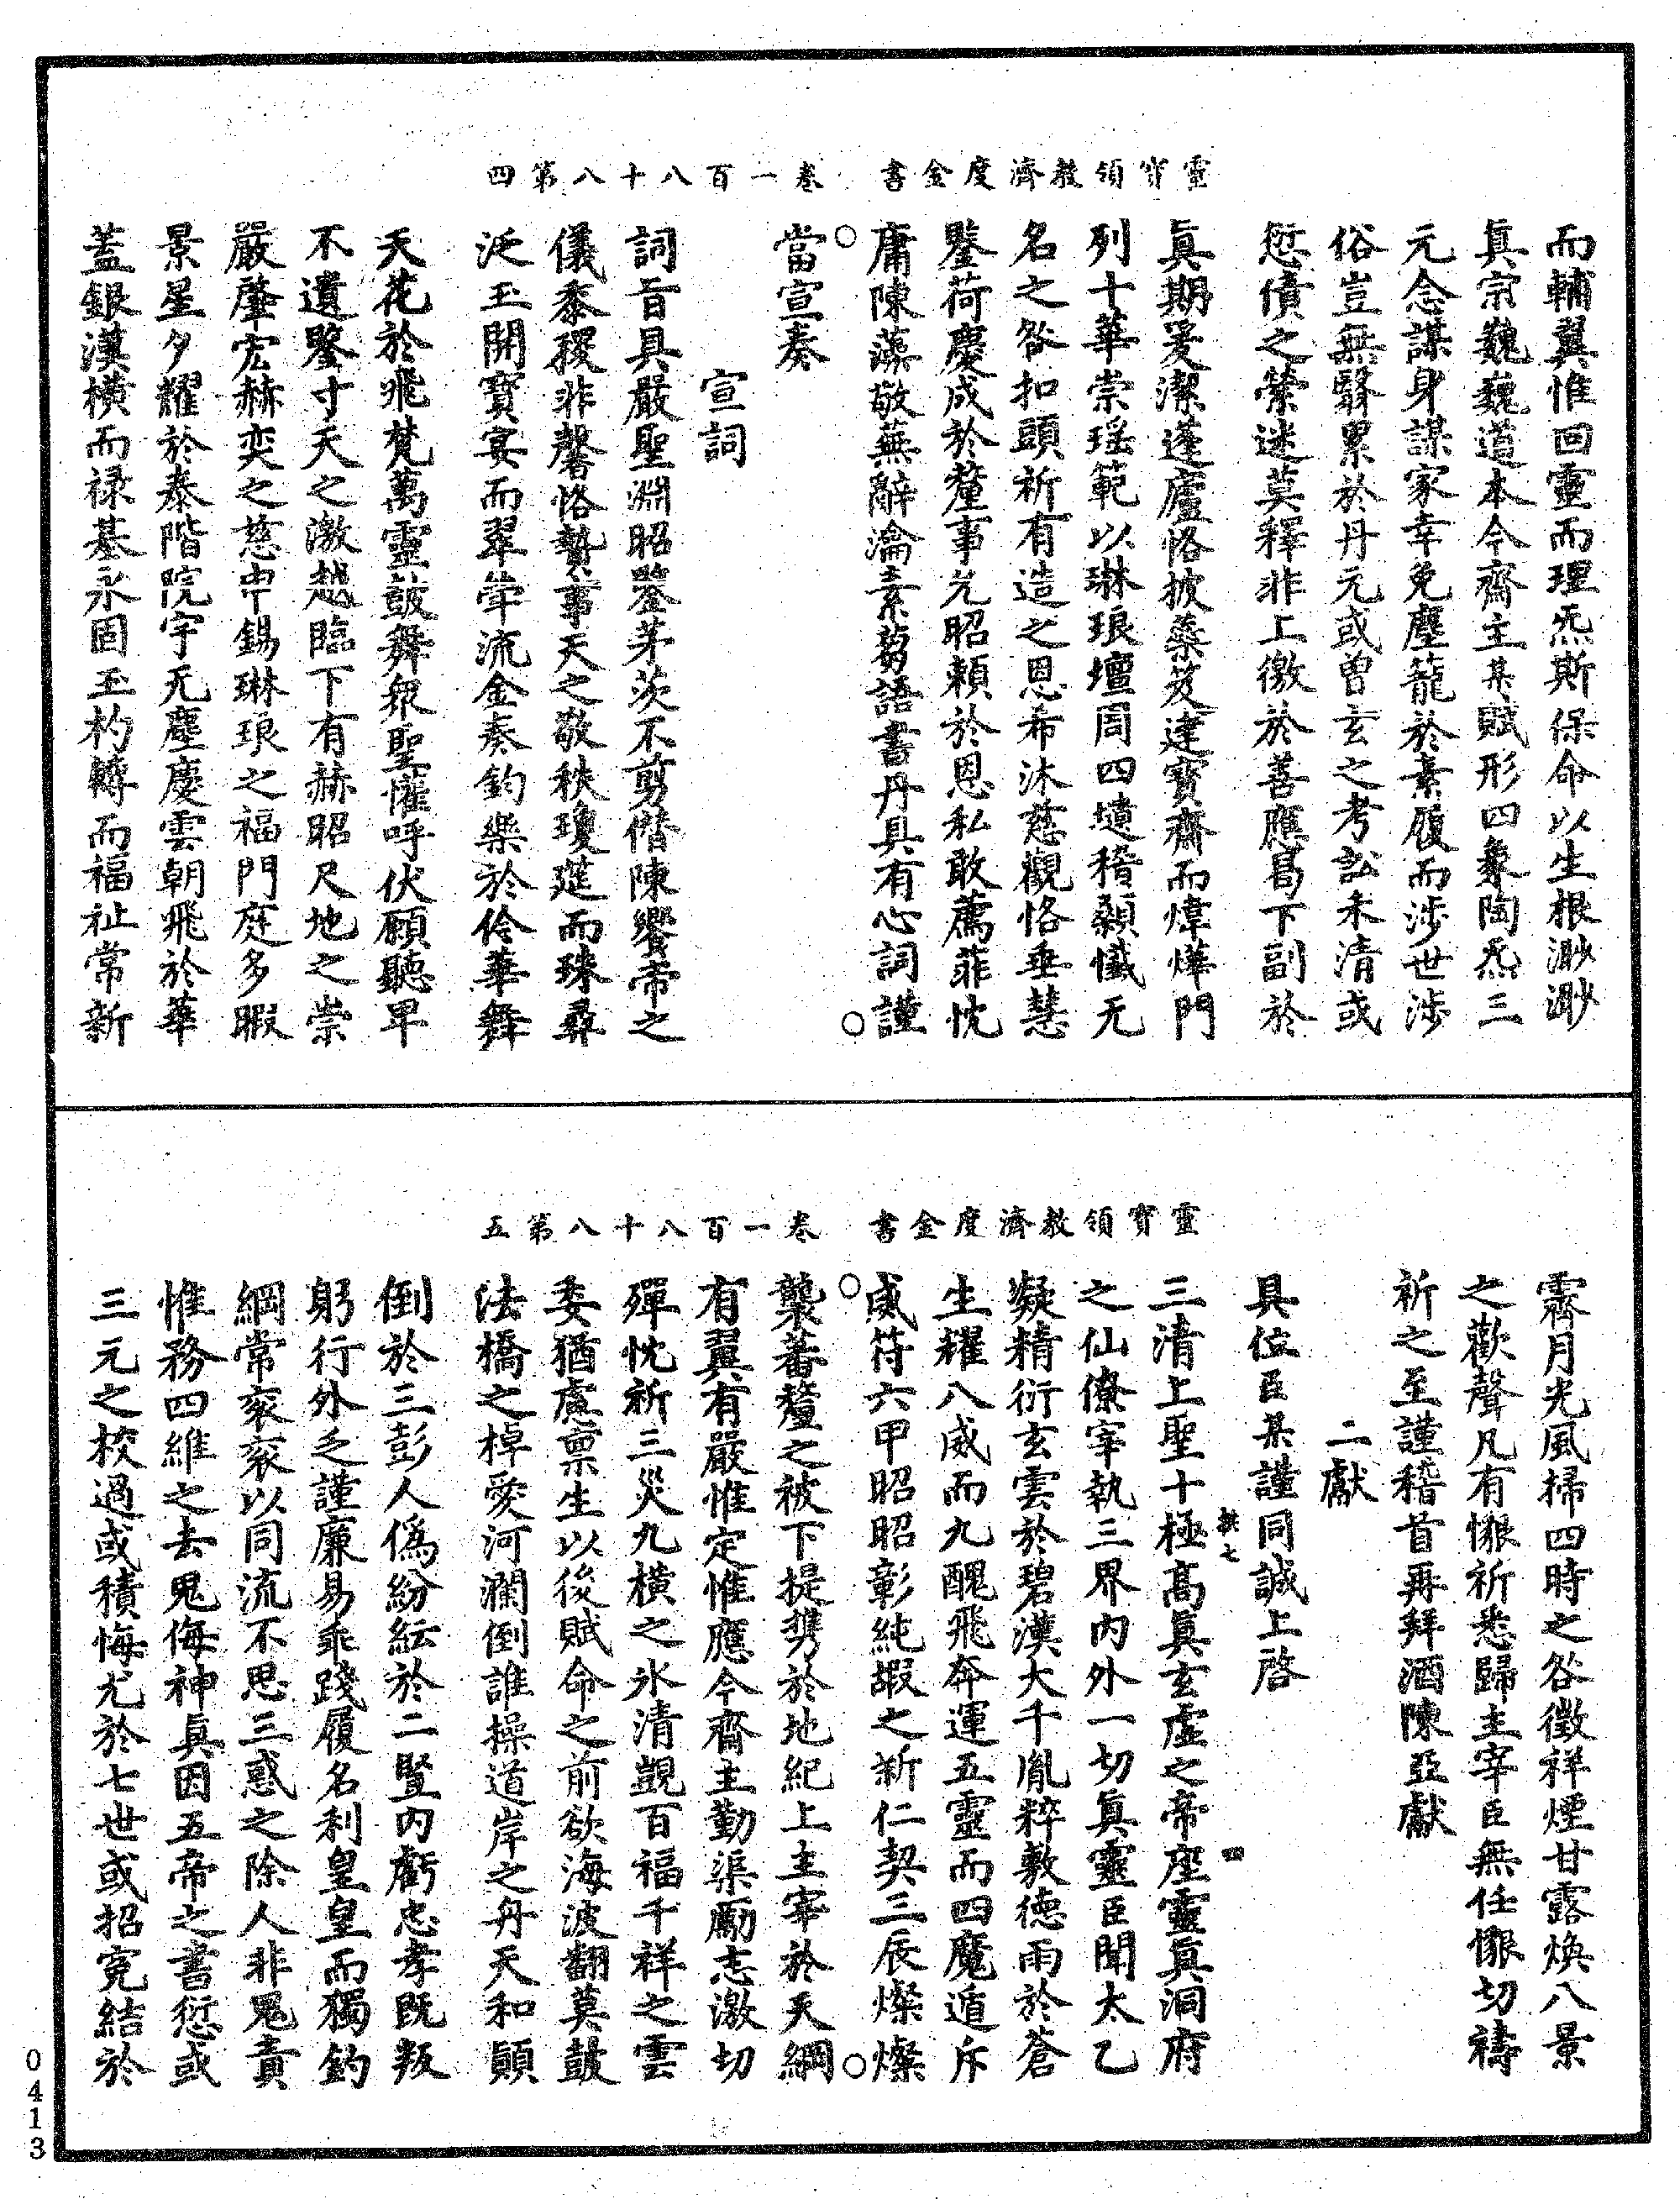 靈寶領教濟度金書　卷一百八十八第四
而輔翼惟回靈而理炁斯保命以生根渺渺
眞宗巍巍道本今齋主某賦形四象陶炁三
元念謀身謀家幸免塵籠於素履而涉世涉
俗豈無翳累於丹元或曾玄之考訟未清或
愆債之縈迷莫釋非上徼於善應曷下副於
眞期爰潔蘧廬恪披蘂笈建寶齋而煒燁門
列十華崇瑶範以琳琅壇周四墤稽顙懺无
名之咎扣頭祈有造之恩希沐慈觀恪垂慧
鑒荷慶成於釐事允昭賴於恩私敢薦菲忱
庸陳藻敬蕪辭瀹素蒭語書丹具有心詞謹
當宣奏
宣詞
詞旨具嚴聖淵昭鑒茅茨不剪偕陳饗帝之
儀黍稷非馨恪贄事天之敬秩瓊筵而珠彞
泛玉開寳宴而翠斝流金奏鈞樂於伶華舞
天花於飛梵萬靈鼓舞衆聖懽呼伏願聽卑
不遺鑒寸天之激越臨下有赫昭尺地之崇
嚴肇宏赫奕之慈申錫琳琅之福門庭多暇
景星夕耀於泰階院宇无塵慶雲朝飛於華
蓋銀漢横而禄基永固玉杓轉而福祉常新
靈寶領教濟度金書　卷一百八十八第五
霽月光風掃四時之咎徵祥煙甘露煥八景
之歡聲凡有懇祈悉歸主宰臣無任懇切禱
祈之至謹稽首再拜酒陳亞獻
二獻
具位臣某謹同誠上啓
三清上聖十極高眞玄虛之帝座靈眞洞府
之仙僚宰執三界内外一切眞靈臣聞太乙
凝精衍玄雲於碧漢大千胤粹敷德雨於蒼
生耀八威而九醜飛奔運五靈而四魔遁斥
威符六甲昭昭彰純嘏之新仁契三辰燦燦
襲蕃釐之被下提携於地紀上主宰於天綱
有翼有嚴惟定惟應今齋主勤渠勵志激切
殫忱祈三災九横之氷清覬百福千祥之雲
委猶慮禀生以後賦命之前欲海波翻莫鼓
法橋之棹愛河瀾倒誰操道岸之舟天和顚
倒於三彭人僞紛紜於二豎内虧忠孝既叛
躬行外乏謹廉易乖踐履名利皇皇而獨釣
綱常衮衮以同流不思三惑之除人非鬼責
惟務四維之去鬼侮神眞因五帝之書愆或
三元之校過或積悔尤於七世或招寃結於
0413